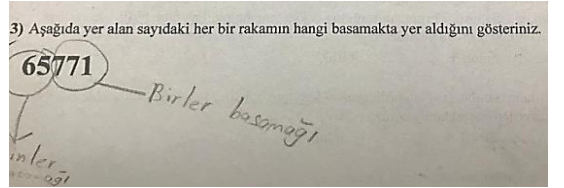 3) Aşağıda yer alan sayıdaki her bir rakamın hangi basamakta yer aldığını gösteriniz.
65771
Birler basamağı
inler